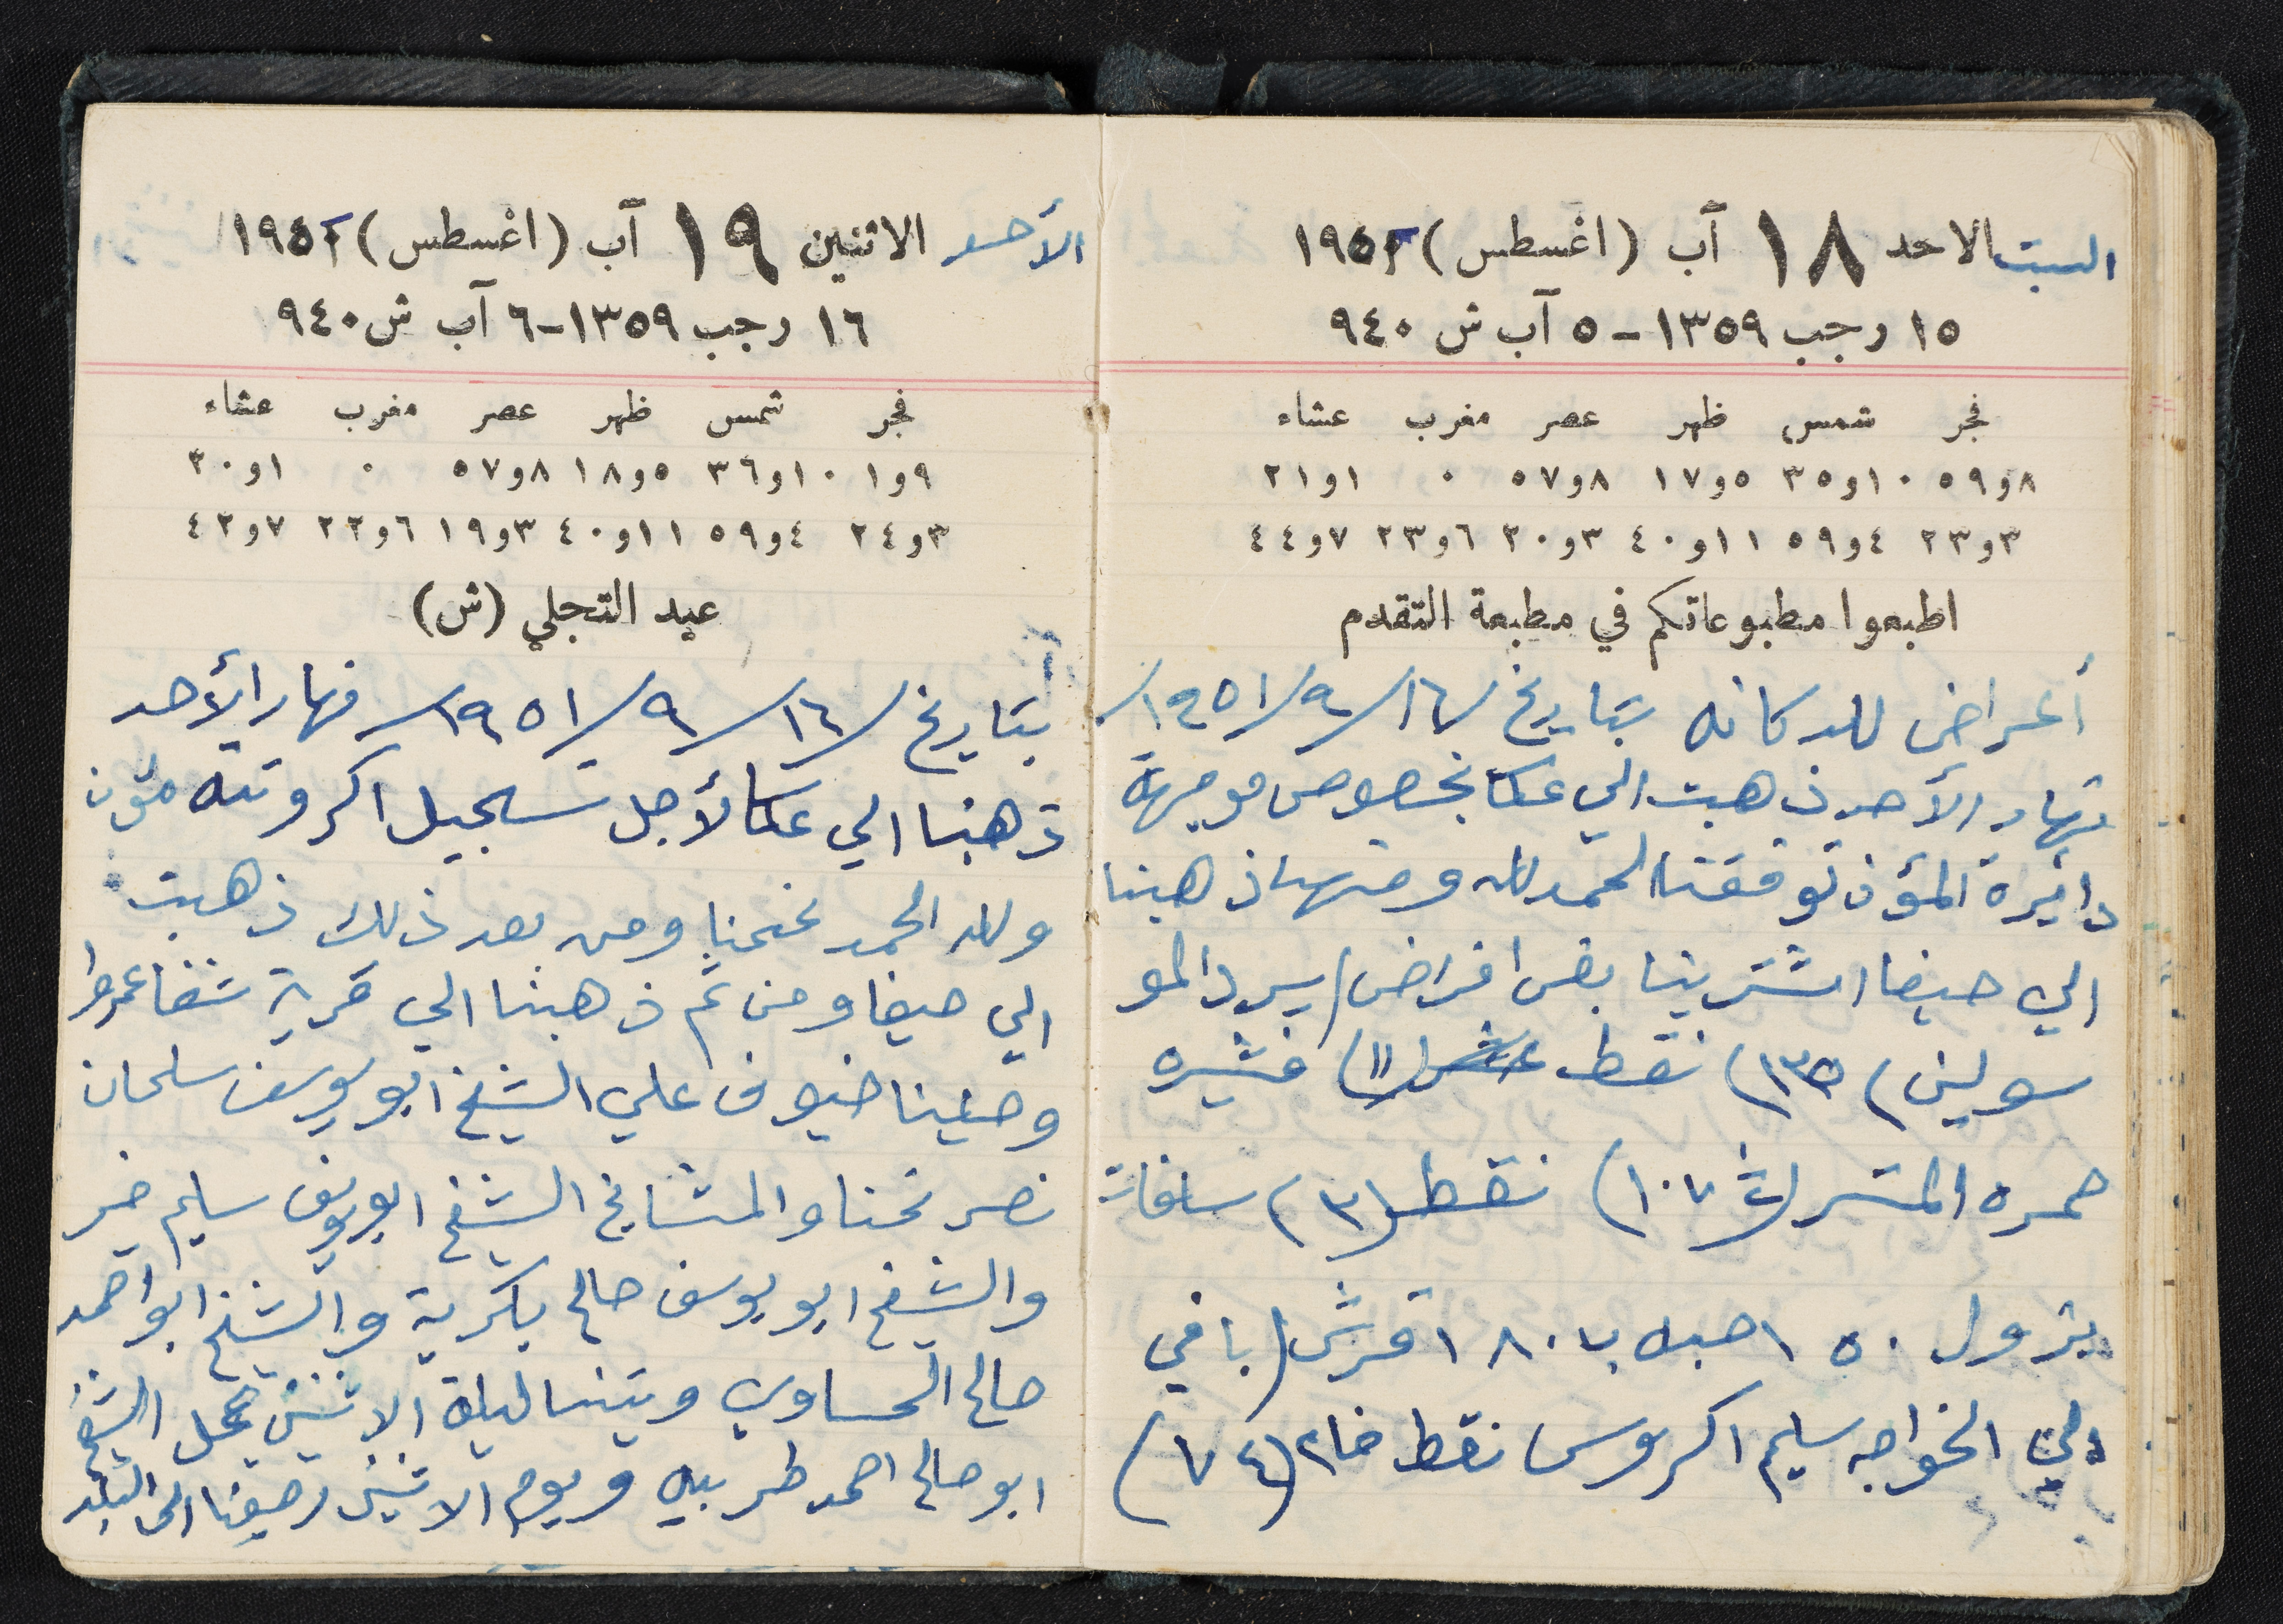 السبت الاحد ١٨ آب (اغسطس) ١٩٥١
١٥ رجب ١٣٥٩-٥ آب ش ٩٤٠
فجر شمس ظهر عصر مغرب عشاء
٨و٥٩ ١٠و٣٥ ٥و١٧ ٨و٥٧ ٠ ١و٢١
٣و٢٣ ٤و٥٩ ١١و٤٠ ٣و٢٠ ٦و٢٣ ٧و٤٤
اطبعوا مطبوعاتكم في مطبعة التقدم
أغراض للدكانه بتاريخ /١٦/٩/١٩٥١/
نهار الأحد ذهبت الي عكا بخصوص موجهة
دائيرة المؤن توفقنا الحمد لله ومنها ذهبنا
الي حيفا اشترينا بعض اغراض/ يرد المو
سولين (١٣٥) نقط (١١) قشيره
حمره المشر (١٠٧) نقط (٣) سافات
بترول ١٥٠ حبه ب ١٨٠٧ قرش/ باقي
الي الخواجه سليم اكروس نقط خام (٧٤)
الأحد الاثنين ١٩ آب (اغسطس) ١٩٥١
١٦ رجب ١٣٥٩-٦ آب ش ٩٤٠
فجر شمس ظهر عصر مغرب عشاء
٩و١ ١٠و٣٦ ٥و١٨ ٨و٥٧ ٠ ١و٢٠
٣و٢٤ ٤و٥٩ ١١و٤٠ ٣و١٩ ٦و٢٢ ٧و٤٢
عيد التجلي (ش)
بتاريخ /١٦/٩/١٩٥١/ نهار الأحد
ذهبنا الي عكا لأجل تسجيل اكروتنه مؤن
ولله الحمد نحجنا ومن بعد ذلك ذهبت
الي حيفا ومن ثم ذهبنا الي قرية شفاعمرو
وصلينا ضيوف علي الشيخ ابو يوسف سلمان
نصر نحنا والمشايخ الشيخ ابو يوسف سليم خير
والشيخ ابو يوسف صالح بكرية والشيخ ابو احمد
صالح الحساوي وبتنا ليلة الاثنين بمحل الشيخ
ابو صالح احمد طربيه ويوم الاثنين رجعنا الى البلد